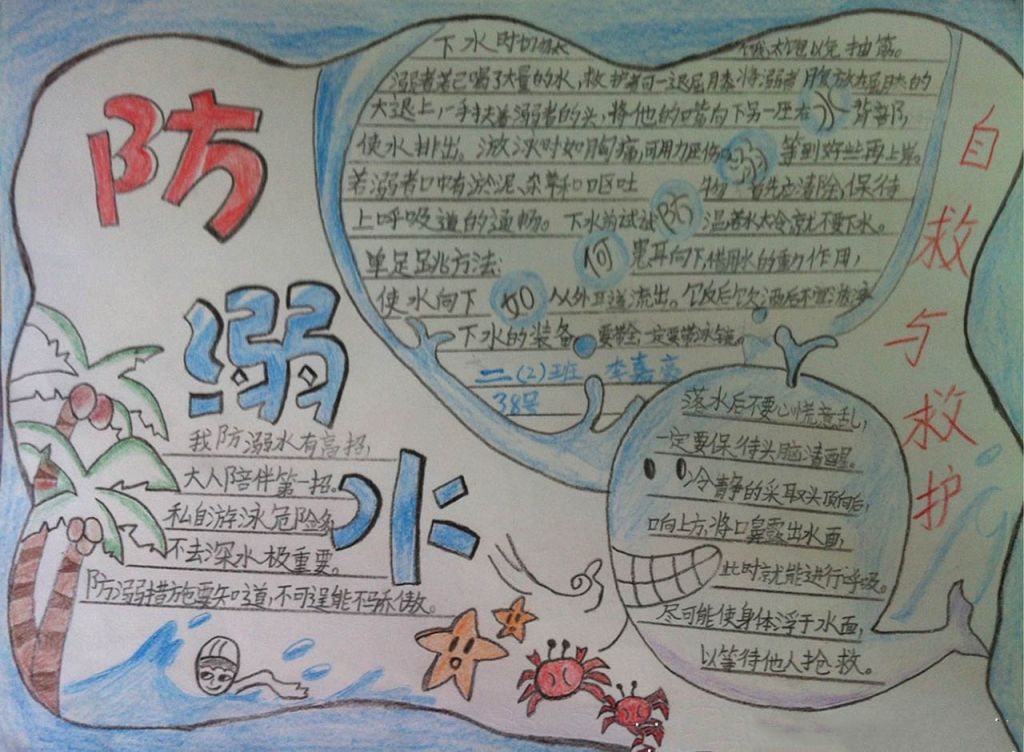 防
溺
水
下水时切勿太饿、太饱以免抽筋。
溺者若已喝了大量的水,救护者可一退屈月膝,将溺者腹放在屈膝的
大退上,一手扶着溺者的头,将他的嘴向下另一压右背部,
使水排出。游泳时如胸痛,可用力压伤等到好些再上岸。
若溺者口中有淤泥、杂草和呕吐物首先应清除,保待
上呼吸道的通畅。下水前试试温若水太冷就不要下水。
单足跳方法:患耳向下,借用水的重力作用,
使水向下从外耳道流出。饮后
下水的装备要带全一定要带泳镜。
如何防溺水
二(2)班 李嘉
38号
自救与救护
我防溺水有高招,
大人陪伴第一招。
私自游泳危险多
不去深水极重要。
防溺措施要知道,不可逞能不骄傲。
落水后不要心慌意乱,
一定要保待头脑清醒。
冷静的采取头顶向后,
口向上方,将口鼻露出水面,
此时就能进行呼吸。
尽可能使身体浮于水面,
以等待他人抢救。